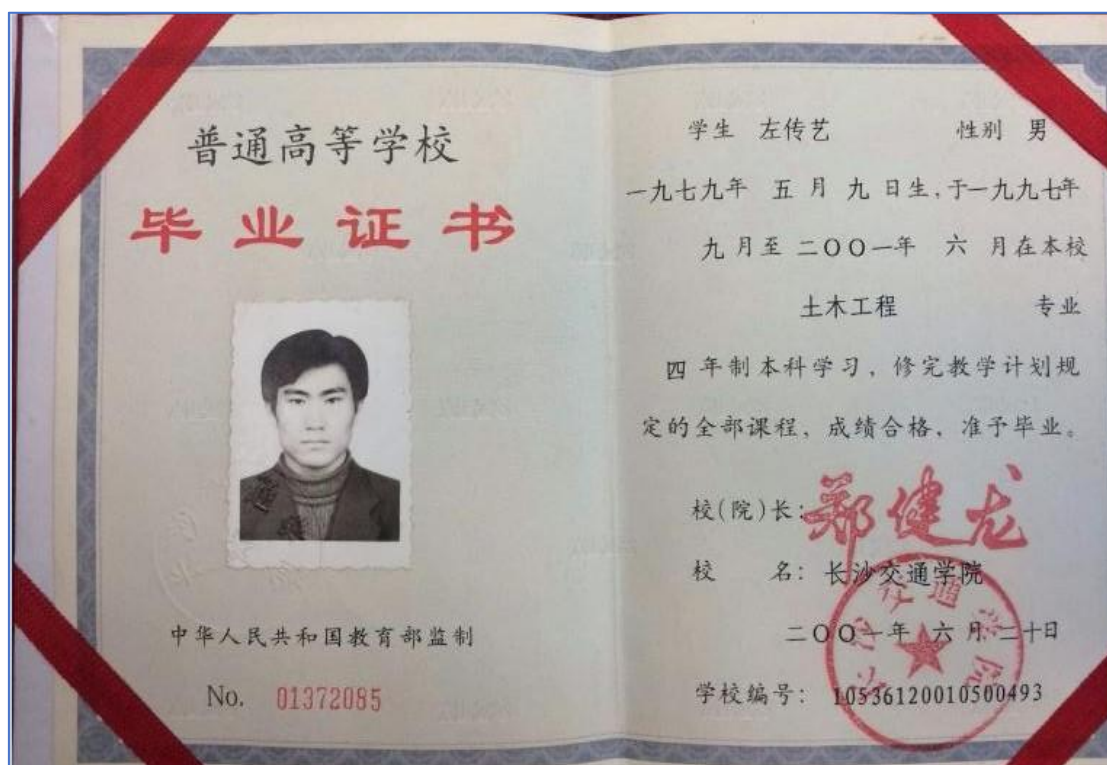 普通高等学校
毕业证书
中华人民共和国教育部监制
No. 01372085
学生 左传艺 性别 男
一九七九年 五 月 九 日生,于一九九七年
九 月至 二〇〇一年 六 月在本校
土木工程 专业
四 年制本科学习,修完教学计划规
定的全部课程,成绩合格,准予毕业。
校(院)长: 郑健龙
校 名: 长沙交通学院
二〇〇一年 六 月 二十日
学校编号: 10536120010500493
长沙交通学院